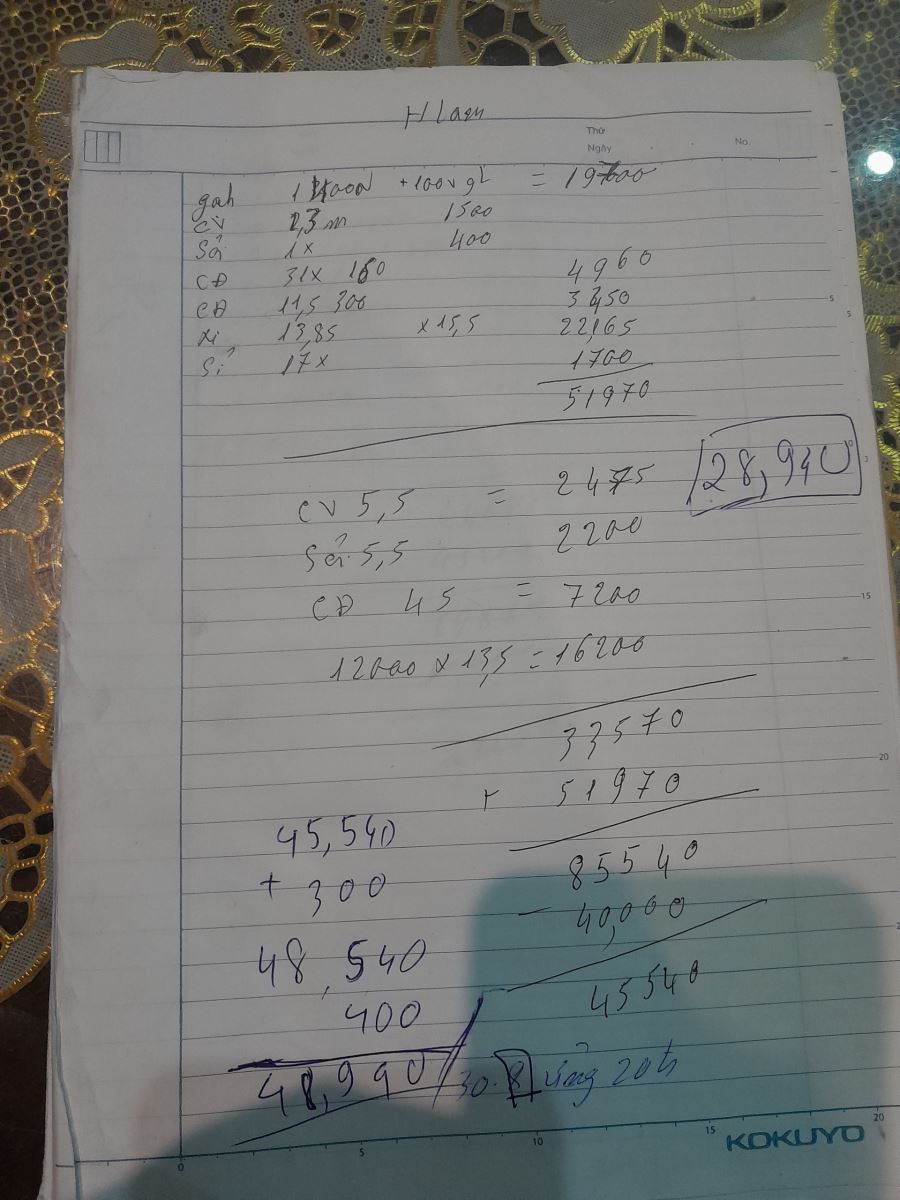 H Lam
Thứ
Ngày
No.
14000 +100v = 19700
CV 2,3 m 1500
Sỏi 1x 400
CĐ 31x 160 4960
CĐ 11,5 300 3450
Xi 13,85 x 15,5 22,165
Sỏi 17x 1700
51970
28,940
CV 5,5 = 2475
Sỏi 5,5 2200
CĐ 45 = 7200
12000 x 13,5 = 16200
33570
+ 51970
85540
- 40,000
45540
45,540
+ 300
48,540
400
48,940
30.8 ứng 20tr
0 5 10 15 20
KOKUYO